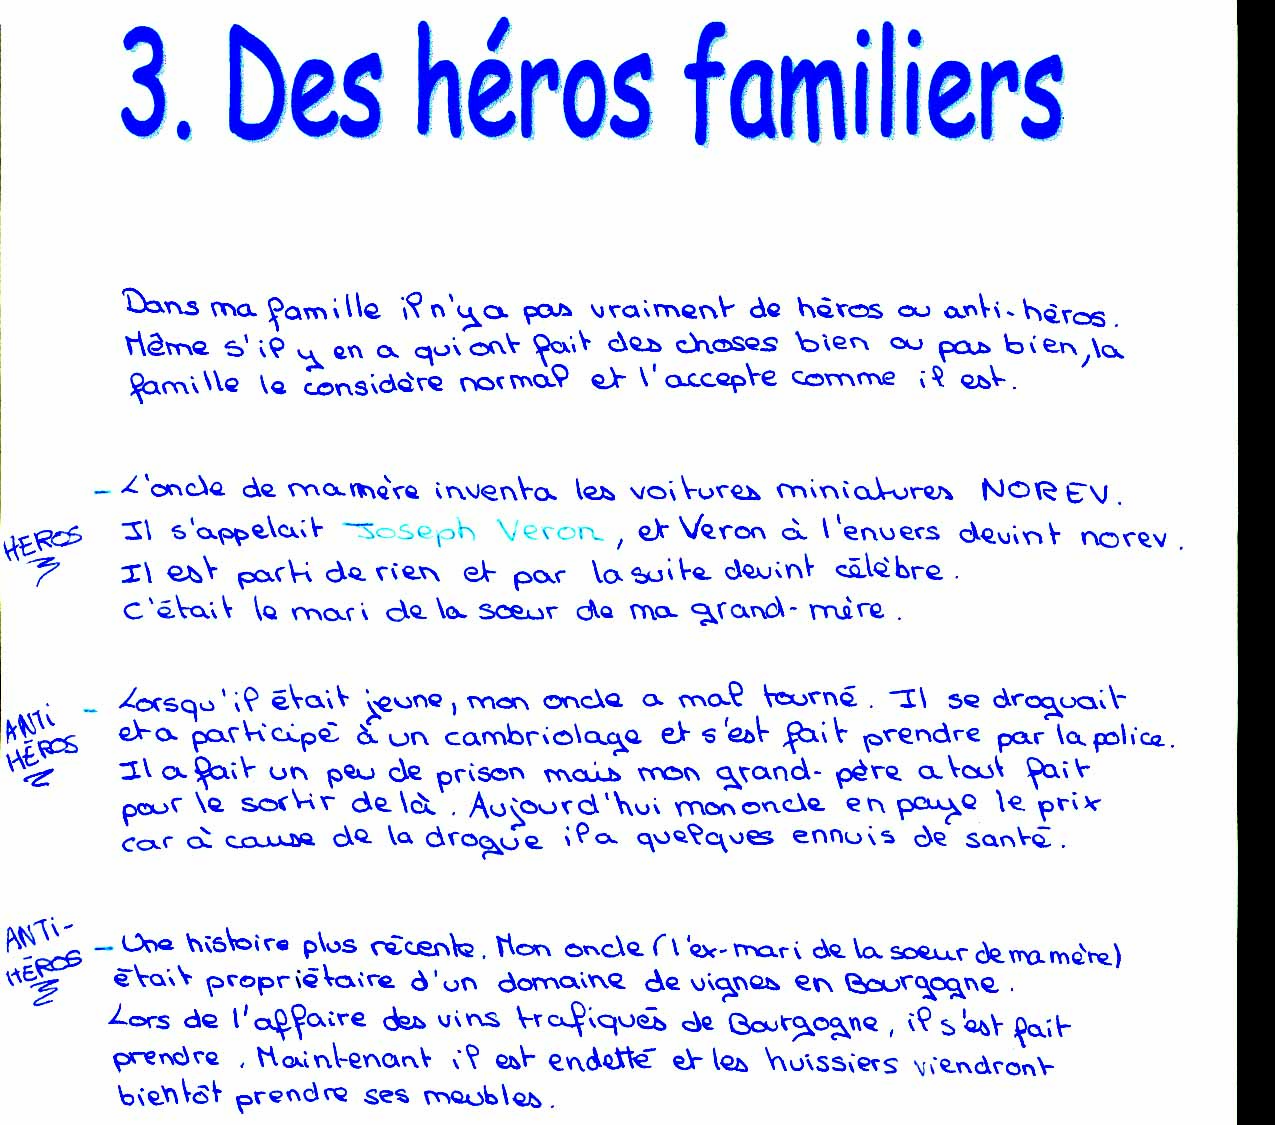 3. Des héros familiers
Dans ma famille il n'y a pas vraiment de héros ou anti-héros.
Même s'il y en a qui ont fait des choses bien ou pas bien, la
famille le considère normal et l'accepte comme il est.
- L'oncle de ma mère inventa les voitures miniatures NOREV.
HEROS
Il s'appelait Joseph Veron, et Veron à l'envers devint norev.
Il est parti de rien et par la suite devint célèbre.
C'était le mari de la sœur de ma grand-mère.
ANTI
HÉROS
- Lorsqu'il était jeune, mon oncle a mal tourné. Il se droguait
et a participé à un cambriolage et s'est fait prendre par la police.
Il a fait un peu de prison mais mon grand-père a tout fait
pour le sortir de là. Aujourd'hui mon oncle en paye le prix
car à cause de la drogue il a quelques ennuis de santé.
ANTI-
HÉROS
- Une histoire plus récente. Mon oncle (l'ex-mari de la sœur de ma mère)
était propriétaire d'un domaine de vignes en Bourgogne.
Lors de l'affaire des vins trafiqués de Bourgogne, il s'est fait
prendre. Maintenant il est endetté et les huissiers viendront
bientôt prendre ses meubles.